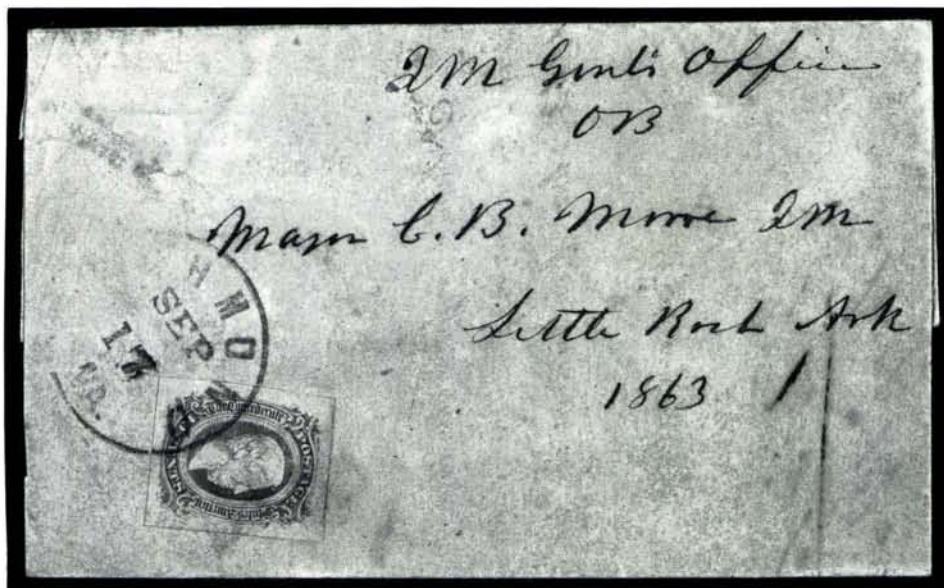 QM Genl's Office
OB
Major C. B. Moore QM
Little Rock Ark
1863
HMON
SEP
17
VA.
The Confederate
States America
POSTAGE
TEN CENTS